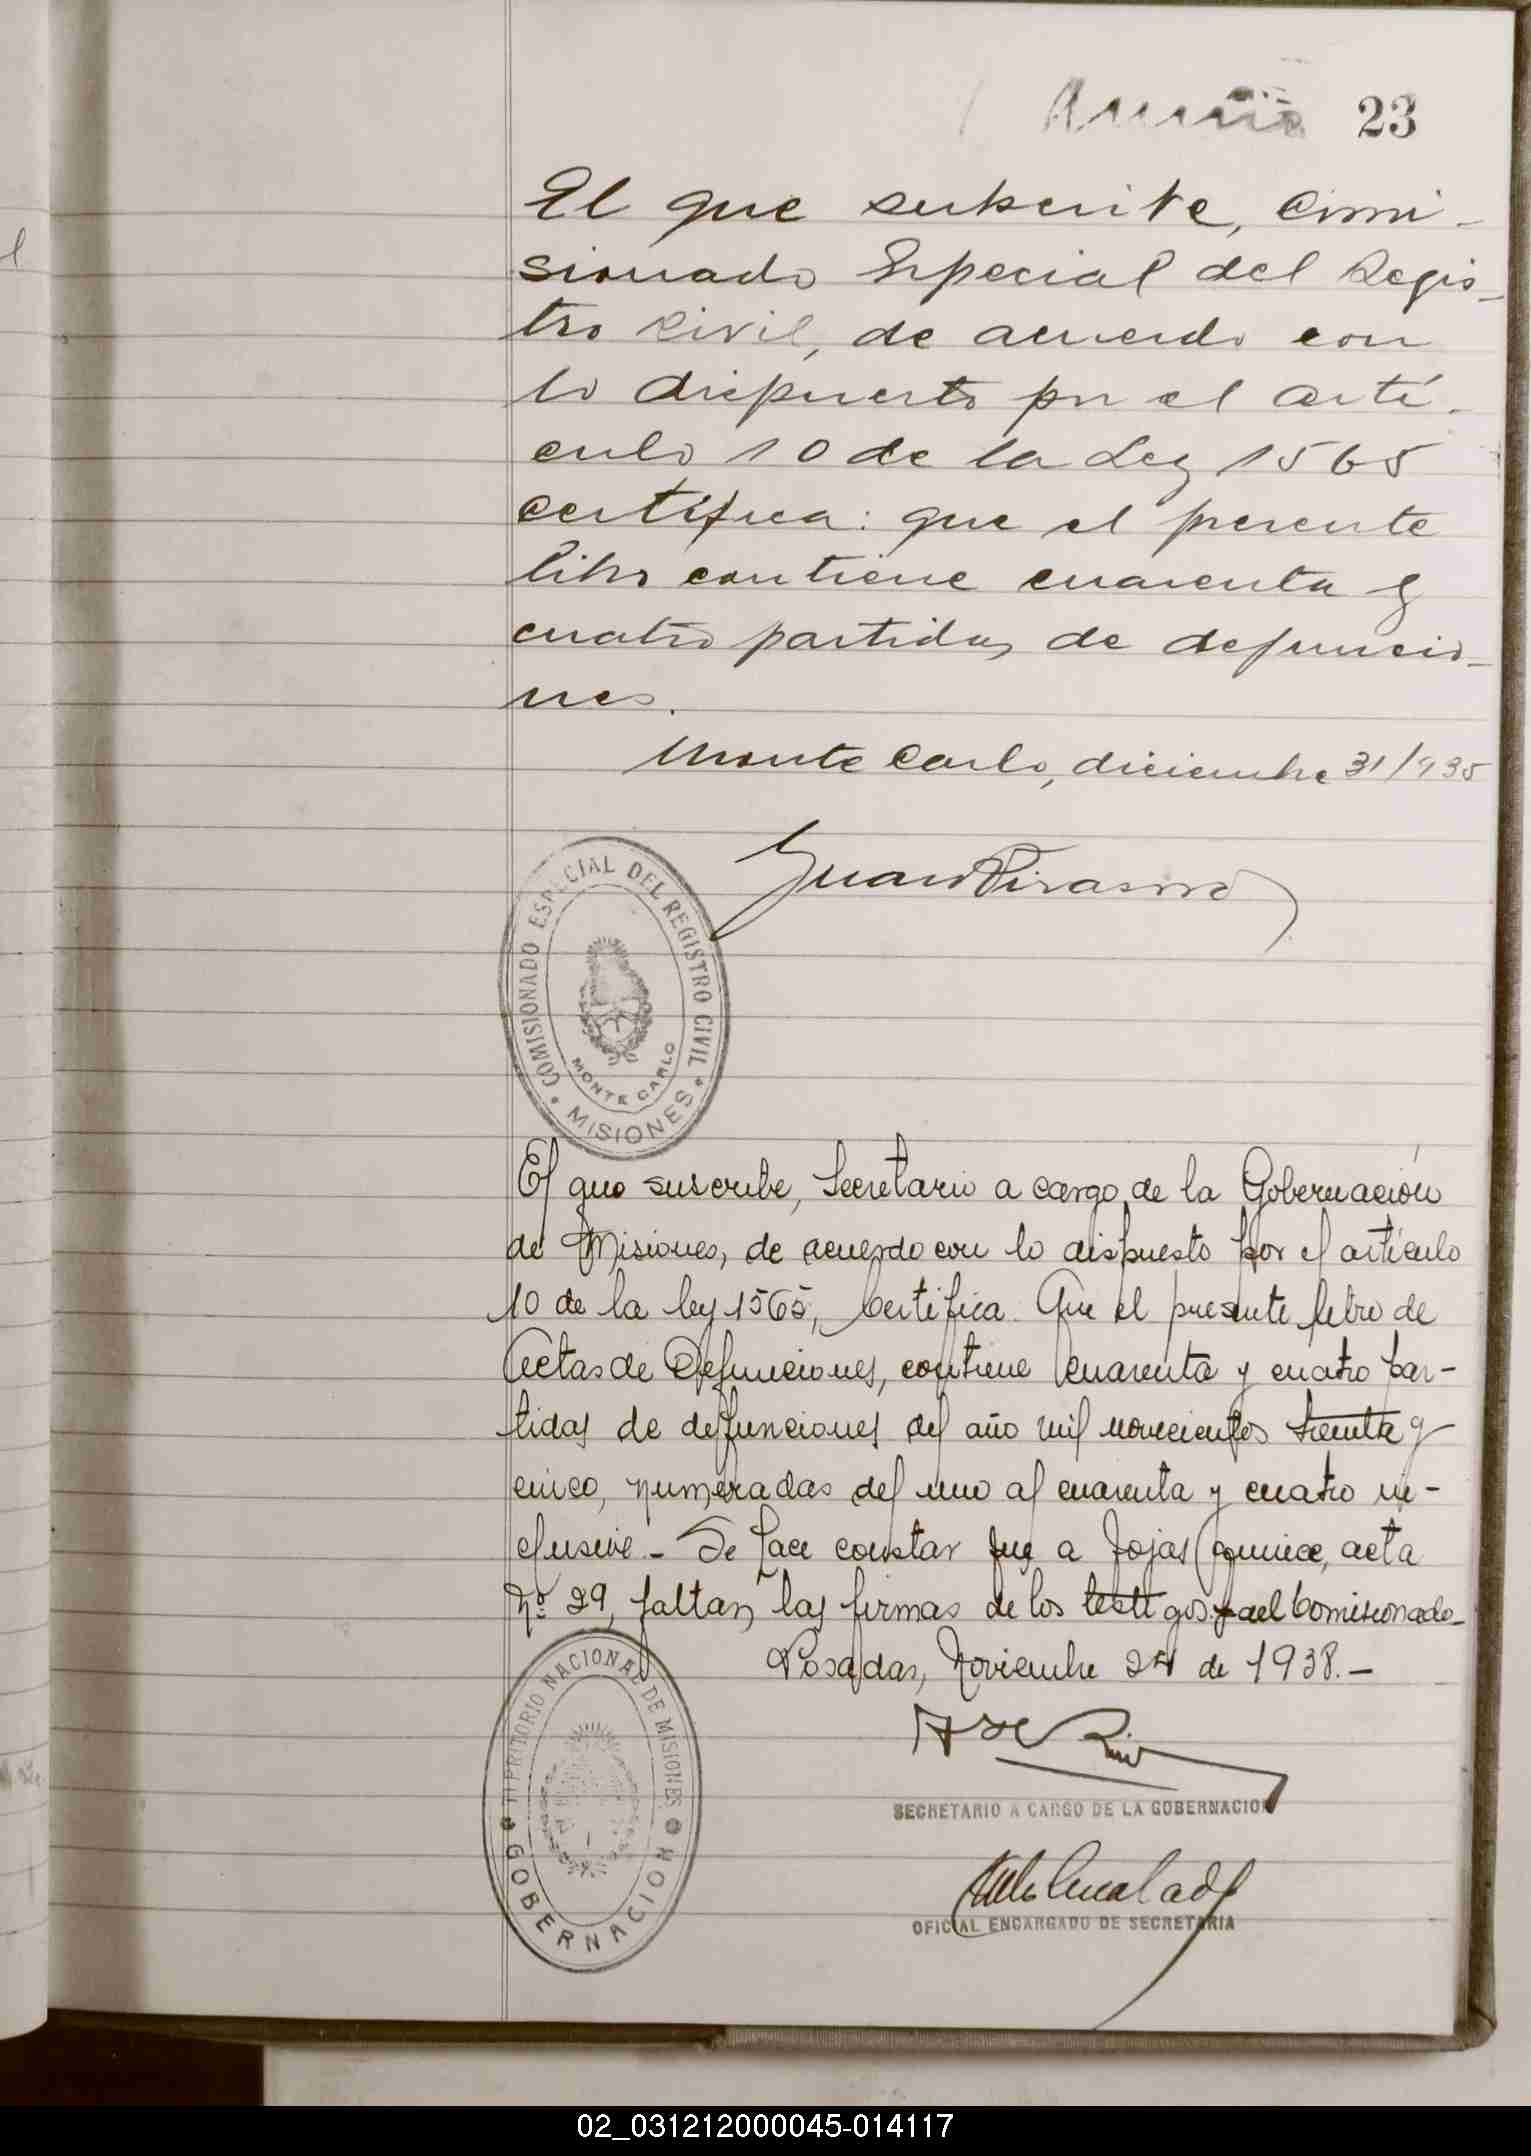 23
El que subscribe, Comi-
sionado Especial del Regis-
tro Civil, de acuerdo con
lo dispuesto por el artí-
culo 10 de la Ley 1565
certifica: que el presente
libro contiene cuarenta y
cuatro partidas de defuncio-
nes.
Monte Carlo, diciembre 31/935
Juan
COMISIONADO ESPECIAL DEL REGISTRO CIVIL
MONTE CARLO
MISIONES
El que suscribe, Secretario a cargo de la Gobernación
de Misiones, de acuerdo con lo dispuesto por el artículo
10 de la ley 1565, Certifica: Que el presente libro de
Actas de Defunciones, contiene cuarenta y cuatro par-
tidas de defunciones del año mil novecientos treinta y
cinco, numeradas del uno al cuarenta y cuatro in-
clusive.- Se hace constar que a fojas quince, acta
Nº 29, faltan las firmas de los testigos y del Comisionado.
Posadas, Noviembre 24 de 1938.-
TERRITORIO NACIONAL DE MISIONES
GOBERNACION
SECRETARIO A CARGO DE LA GOBERNACION
OFICIAL ENCARGADO DE SECRETARIA
02_031212000045-014117